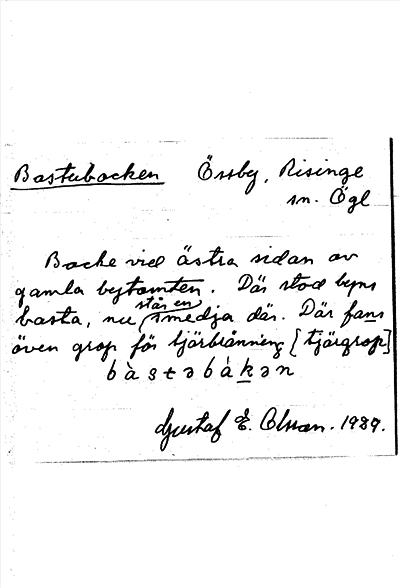 Bastubacken Össby, Risinge
sn. Ögl
Backe vid östra sidan av
gamla bytomten. Där stod byns
basta, nu står en smedja där. Där fans
även grop för tjärbränning [tjärgrop]
bàstəbàkən
Gustaf E. Olsson. 1989.